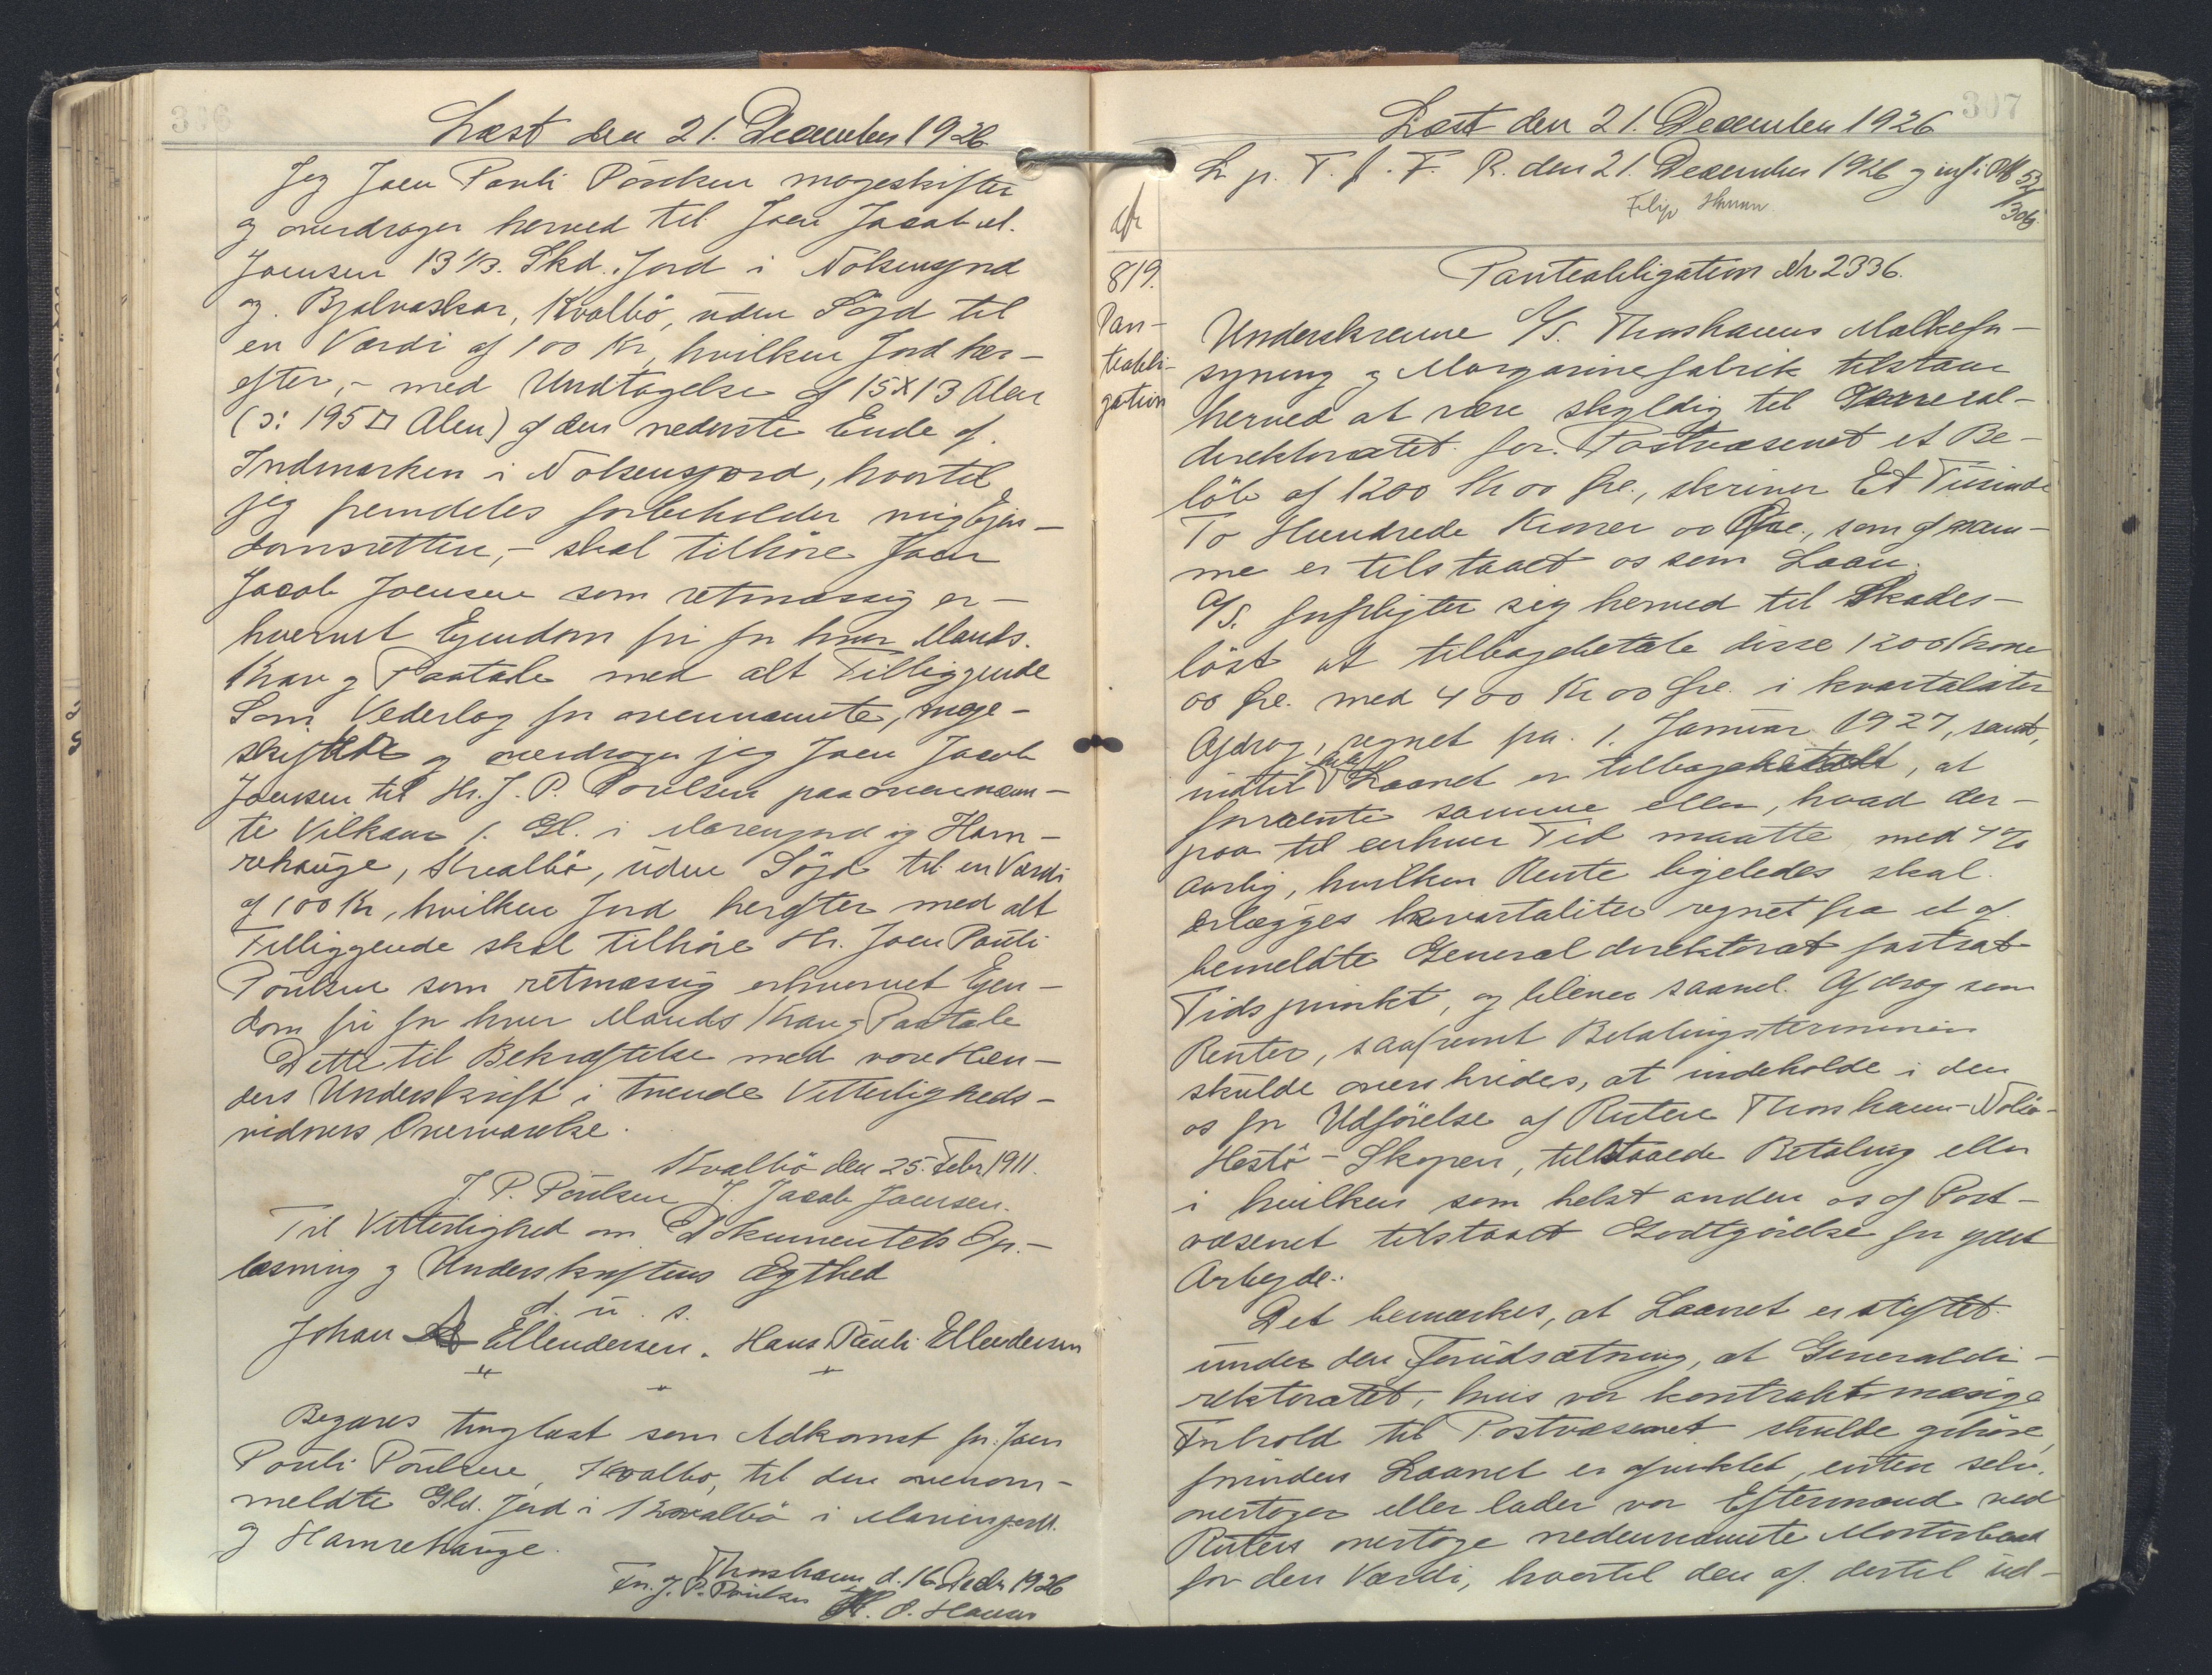 306
Læst den 21. December 1926.
Jeg Joen Pauli Poulsen mageskifter
og overdrager herved til Joen Jacob
Joensen 13 1/3. Skd. Jord i Nolsensgard
og Bjalvaskar, Kvalbö, uden Söjd til
en Værdi af 100 Kr, hvilken Jord her-
efter, - med Undtagelse af 15 x 13 Alen
(ɔ: 195 □ Alen) af den nederste Ende af
Indmarken i Nolsensgard, hvortil
jeg fremdeles forbeholder mig Ejen-
domsretten, - skal tilhöre Joen
Jacob Joensen som retmæssig er-
hvervet Ejendom fri for hver Mands
Krav og Paatale med alt Tilliggende
Som Vederlag for ovennævnte, mage-
skifter og overdrager jeg Joen Jacob
Joensen til Hr. J. P. Poulsen paa ovennævn-
te Vilkaar 1. Gl. i Marengard og Ham-
rehauge, Kvalbö, uden Söjd til en Værdi
af 100 Kr, hvilken Jord herefter med alt
Tilliggende skal tilhöre Hr. Joen Pauli
Poulsen som retmæssig erhvervet Ejen-
dom fri for hver Mands Krav og Paatale
Dette til Bekræftelse med vore Hæn-
ders Underskrift i tvende Vitterligheds-
vidners Overværelse.
Kvalbö den 25. Febr 1911.
J. P. Poulsen J. Jacob Joensen.
Til Vitterlighed om Dokumentets Op-
læsning og Underskriftens Ægthed
d. u. s.
Johan Ellendersen. Hans Pauli Ellendersen
Begæres tinglæst som Adkomst for Joen
Pauli Poulsen, Kvalbø, til den ovenom-
meldte Gld. Jord i Kvalbö i Marengard
og Hamrehauge.
Thorshavn d. 16 Decbr 1926
Fr. J. P. Poulsen O. Hansen
307
Læst den 21. December 1926
L. p. T. f. F. R. den 21. December 1926 og indf i
53
306
819.
Pan-
teobli-
gation
Panteobligation Nr 2336.
Underskrevne A/S. Thorshavns Mælkefor-
syning og Margarinefabrik tilstaar
herved at være skyldig til General-
direktoratet for Postvæsenet et Be-
löb af 1200 Kr 00 Øre., skriver Et Tusinde
To Hundrede Kroner 00 Øre., som af sam-
me er tilstaaet os som Laan.
A/S. forpligter sig herved til Skades-
löst at tilbagebetale disse 1200 Krone
00 Øre. med 400 Kr 00 Øre. i kvartalsiter
Afdrag, regnet fra 1. Januar 1927, samt,
indtil hele Laanet er tilbagebetalt, at
forrente samme eller, hvad der-
paa til enhver Tid maatte med 7%
aarlig, hvilken Rente ligeledes skal
erlægges kvartaliter regnet fra et af
bemeldte Generaldirektorat fastsat
Tidspunkt, og bliver saavel Afdrag som
Renter, saafremt Betalingsterminen
skulde overskrides, at indeholde i den
os for Udførelse af Ruten Thorshavn-Nolsö-
Hestö-Skopen, tilstaaede Betaling eller
i hvilken som helst anden os af Post-
væsenet tilstaaet Godtgörelse for ydet
Arbejde.
Det bemærkes, at Laanet er stiftet
under den Forudsætning, at Generaldi-
rektoratet, hvis vor kontraktsmæsige
Forhold til Postvæsenet skulde ophöre,
forinden Laanet er afviklet, enten selv
overtager eller lader vor Eftermand ved
Ruten overtage nedennævnte Motorbaad
for den Værdi, hvortil den af dertil ud-